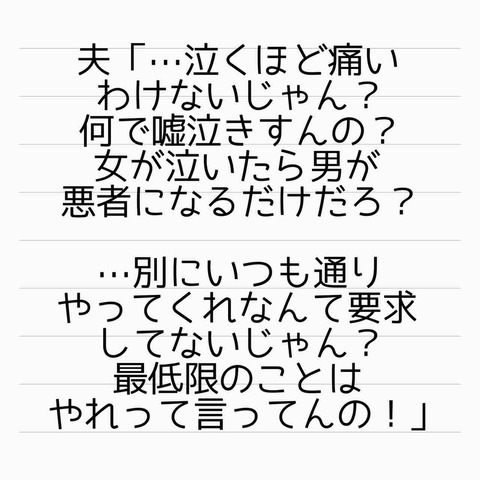 夫「…泣くほど痛い
わけないじゃん？
何で嘘泣きすんの？
女が泣いたら男が
悪者になるだけだろ？
…別にいつも通り
やってくれなんて要求
してないじゃん？
最低限のことは
やれって言ってんの！」